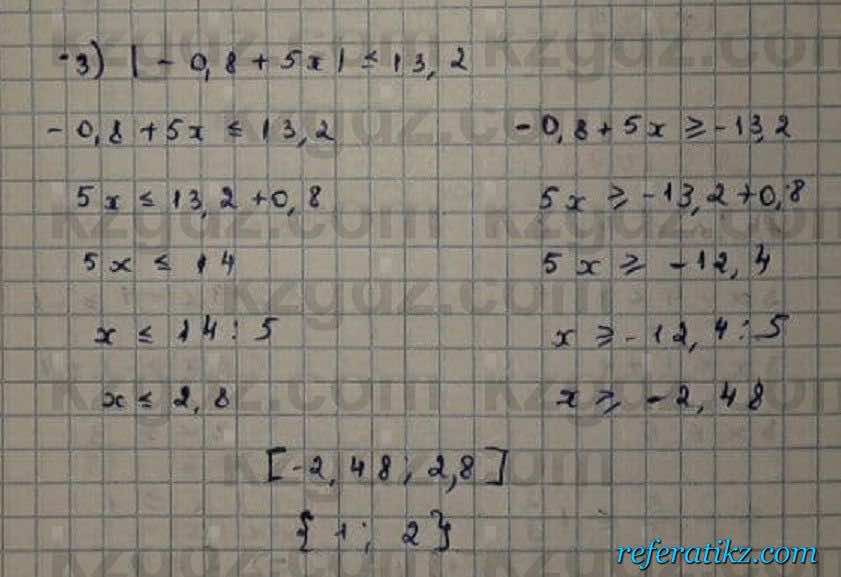 3) |-0,8+5x| ≤ 13,2
-0,8+5x ≤ 13,2
5x ≤ 13,2+0,8
5x ≤ 14
x ≤ 14:5
x ≤ 2,8
-0,8+5x ≥ -13,2
5x ≥ -13,2+0,8
5x ≥ -12,4
x ≥ -12,4:5
x ≥ -2,48
[-2,48; 2,8]
{1; 2}
kzgdz.com
referatikz.com